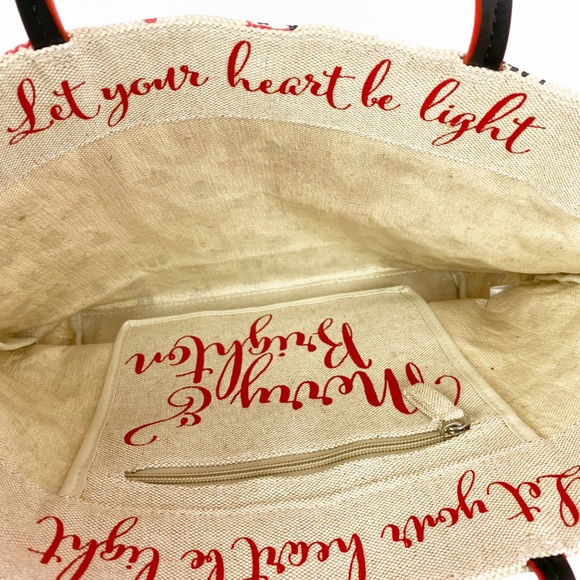 Let your heart be light
Merry &
Brighton
Let your heart be light